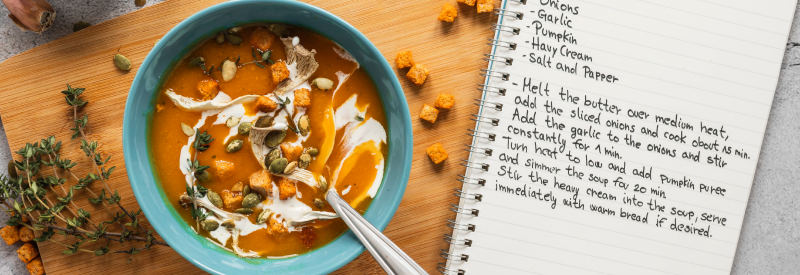 Onions
- Garlic
- Pumpkin
- Havy Cream
- Salt and Papper
Melt the butter over medium heat,
add the sliced onions and cook about 15 min.
Add the garlic to the onions and stir
constantly for 1 min.
Turn heat to low and add pumpkin puree
and simmer the soup for 20 min.
Stir the heavy cream into the soup, serve
immediately with warm bread if desired.